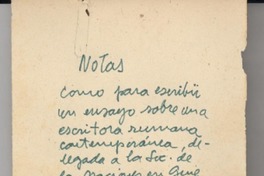 Notas
como para escribir
un ensayo sobre una
escritora rumana
contemporánea, de-
legada a la Soc. de